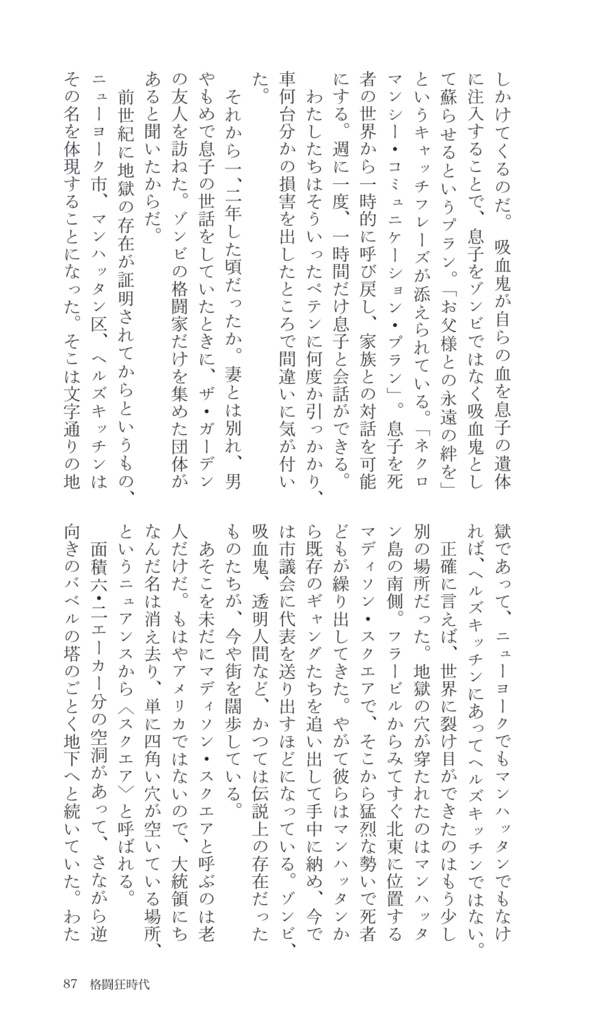 しかけてくるのだ。　吸血鬼が自らの血を息子の遺体
に注入することで、息子をゾンビではなく吸血鬼とし
て蘇らせるというプラン。「お父様との永遠の絆を」
というキャッチフレーズが添えられている。「ネクロ
マンシー・コミュニケーション・プラン」。息子を死
者の世界から一時的に呼び戻し、家族との対話を可能
にする。週に一度、一時間だけ息子と会話ができる。
　わたしたちはそういったペテンに何度か引っかかり、
車何台分かの損害を出したところで間違いに気が付い
た。
　それから一、二年した頃だったか。妻とは別れ、男
やもめで息子の世話をしていたときに、ザ・ガーデン
の友人を訪ねた。ゾンビの格闘家だけを集めた団体が
あると聞いたからだ。
　前世紀に地獄の存在が証明されてからというもの、
ニューヨーク市、マンハッタン区、ヘルズキッチンは
その名を体現することになった。そこは文字通りの地
獄であって、ニューヨークでもマンハッタンでもなけ
れば、ヘルズキッチンにあってヘルズキッチンではない。
　正確に言えば、世界に裂け目ができたのはもう少し
別の場所だった。地獄の穴が穿たれたのはマンハッタ
ン島の南側。フラービルからみてすぐ北東に位置する
マディソン・スクエアで、そこから猛烈な勢いで死者
どもが繰り出してきた。やがて彼らはマンハッタンか
ら既存のギャングたちを追い出して手中に納め、今で
は市議会に代表を送り出すほどになっている。ゾンビ、
吸血鬼、透明人間など、かつては伝説上の存在だった
ものたちが、今や街を闊歩している。
　あそこを未だにマディソン・スクエアと呼ぶのは老
人だけだ。もはやアメリカではないので、大統領にち
なんだ名は消え去り、単に四角い穴が空いている場所、
というニュアンスから〈スクエア〉と呼ばれる。
　面積六・二エーカー分の空洞があって、さながら逆
向きのバベルの塔のごとく地下へと続いていた。わた
87　格闘狂時代